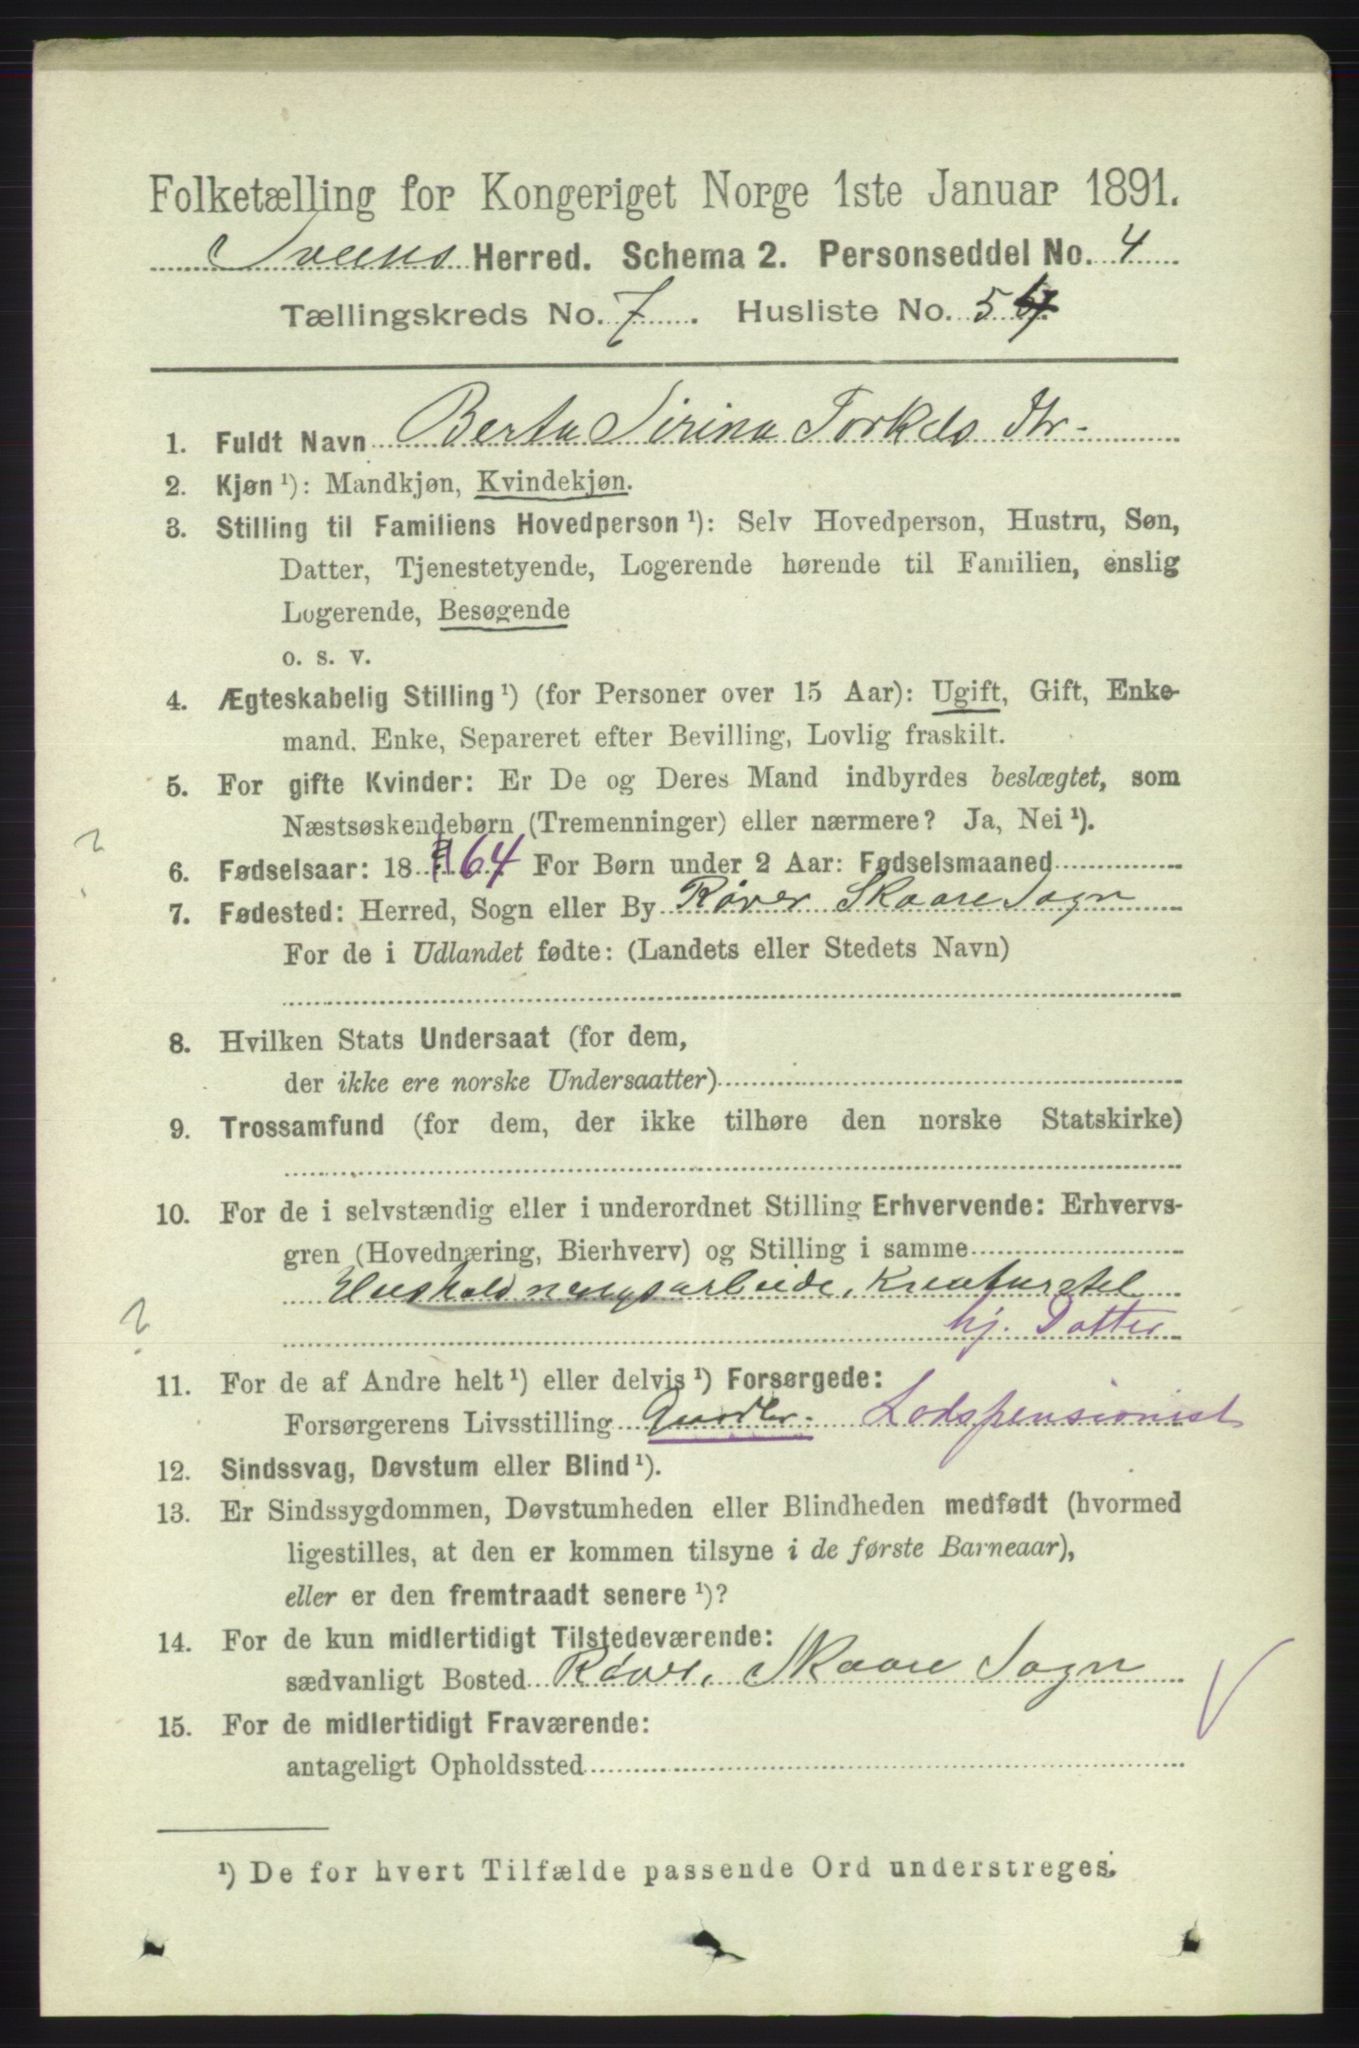 Folketælling for Kongeriget Norge 1ste Januar 1891.
Sveens Herred. Schema 2. Personseddel No. 4
Tællingskreds No. 7. Husliste No. 5
1. Fuldt Navn Berta Sirina Torkels Dtr.
2. Kjøn ¹): Mandkjøn, Kvindekjøn.
3. Stilling til Familiens Hovedperson ¹): Selv Hovedperson, Hustru, Søn,
Datter, Tjenestetyende, Logerende hørende til Familien, enslig
Logerende, Besøgende
o. s. v.
4. Ægteskabelig Stilling ¹) (for Personer over 15 Aar): Ugift, Gift, Enke-
mand, Enke, Separeret efter Bevilling, Lovlig fraskilt.
5. For gifte Kvinder: Er De og Deres Mand indbyrdes beslægtet, som
Næstsøskendebørn (Tremenninger) eller nærmere? Ja, Nei ¹).
?
6. Fødselsaar: 18 64 For Børn under 2 Aar: Fødselsmaaned
7. Fødested: Herred, Sogn eller By Røver Skaare Sogn
For de i Udlandet fødte: (Landets eller Stedets Navn)
8. Hvilken Stats Undersaat (for dem,
der ikke ere norske Undersaatter)
9. Trossamfund (for dem, der ikke tilhøre den norske Statskirke)
10. For de i selvstændig eller i underordnet Stilling Erhvervende: Erhvervs-
gren (Hovednæring, Bierhverv) og Stilling i samme
Husholdningsarbeide, Kreaturstel
? hj. Datter
11. For de af Andre helt ¹) eller delvis ¹) Forsørgede:
Forsørgerens Livsstilling Lodspensionist
12. Sindssvag, Døvstum eller Blind ¹).
13. Er Sindssygdommen, Døvstumheden eller Blindheden medfødt (hvormed
ligestilles, at den er kommen tilsyne i de første Barneaar),
eller er den fremtraadt senere ¹)?
14. For de kun midlertidigt Tilstedeværende:
sædvanligt Bosted Røver, Skaare Sogn
15. For de midlertidigt Fraværende:
antageligt Opholdssted
¹) De for hvert Tilfælde passende Ord understreges.